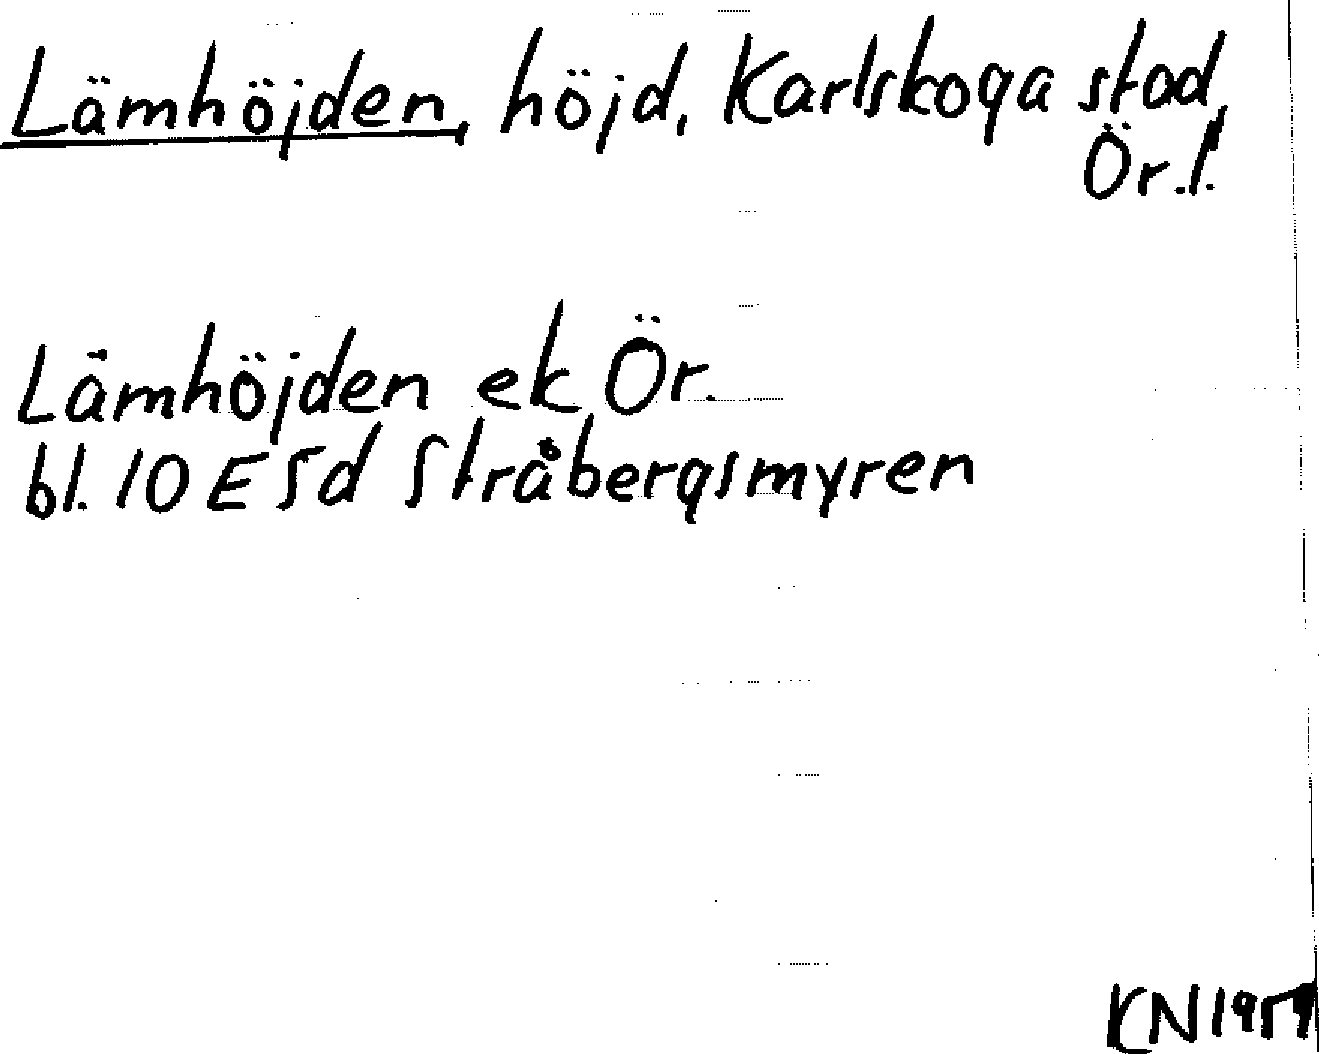 Lämhöjden, höjd, Karlskoga stad,
Ör.l.
Lämhöjden ek Ör.
bl. 10 E 5d Stråbergsmyren
KN 1959